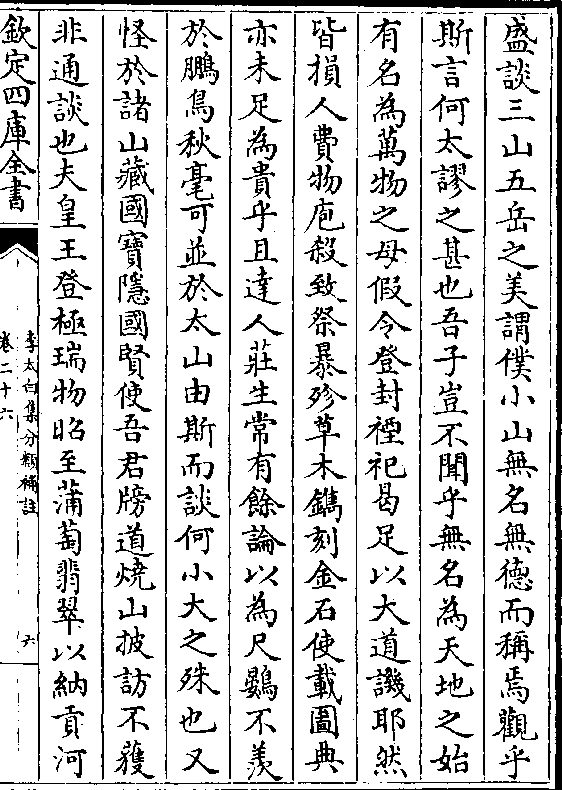 盛談三山五岳之美謂僕小山無名無德而稱焉觀乎
斯言何太謬之甚也吾子豈不聞乎無名為天地之始
有名為萬物之母假令登封禋祀曷足以大道譏耶然
皆損人費物庖殺致祭暴殄草木鐫刻金石使載圖典
亦未足為貴乎且達人莊生常有餘論以為尺鷃不羨
於鵬鳥秋毫可並於太山由斯而談何小大之殊也又
怪於諸山藏國寶隱國賢使吾君牓道燒山披訪不獲
非通談也夫皇王登極瑞物昭至蒲萄翡翠以納貢河
欽定四庫全書
李太白集分類補註
卷二十六
六